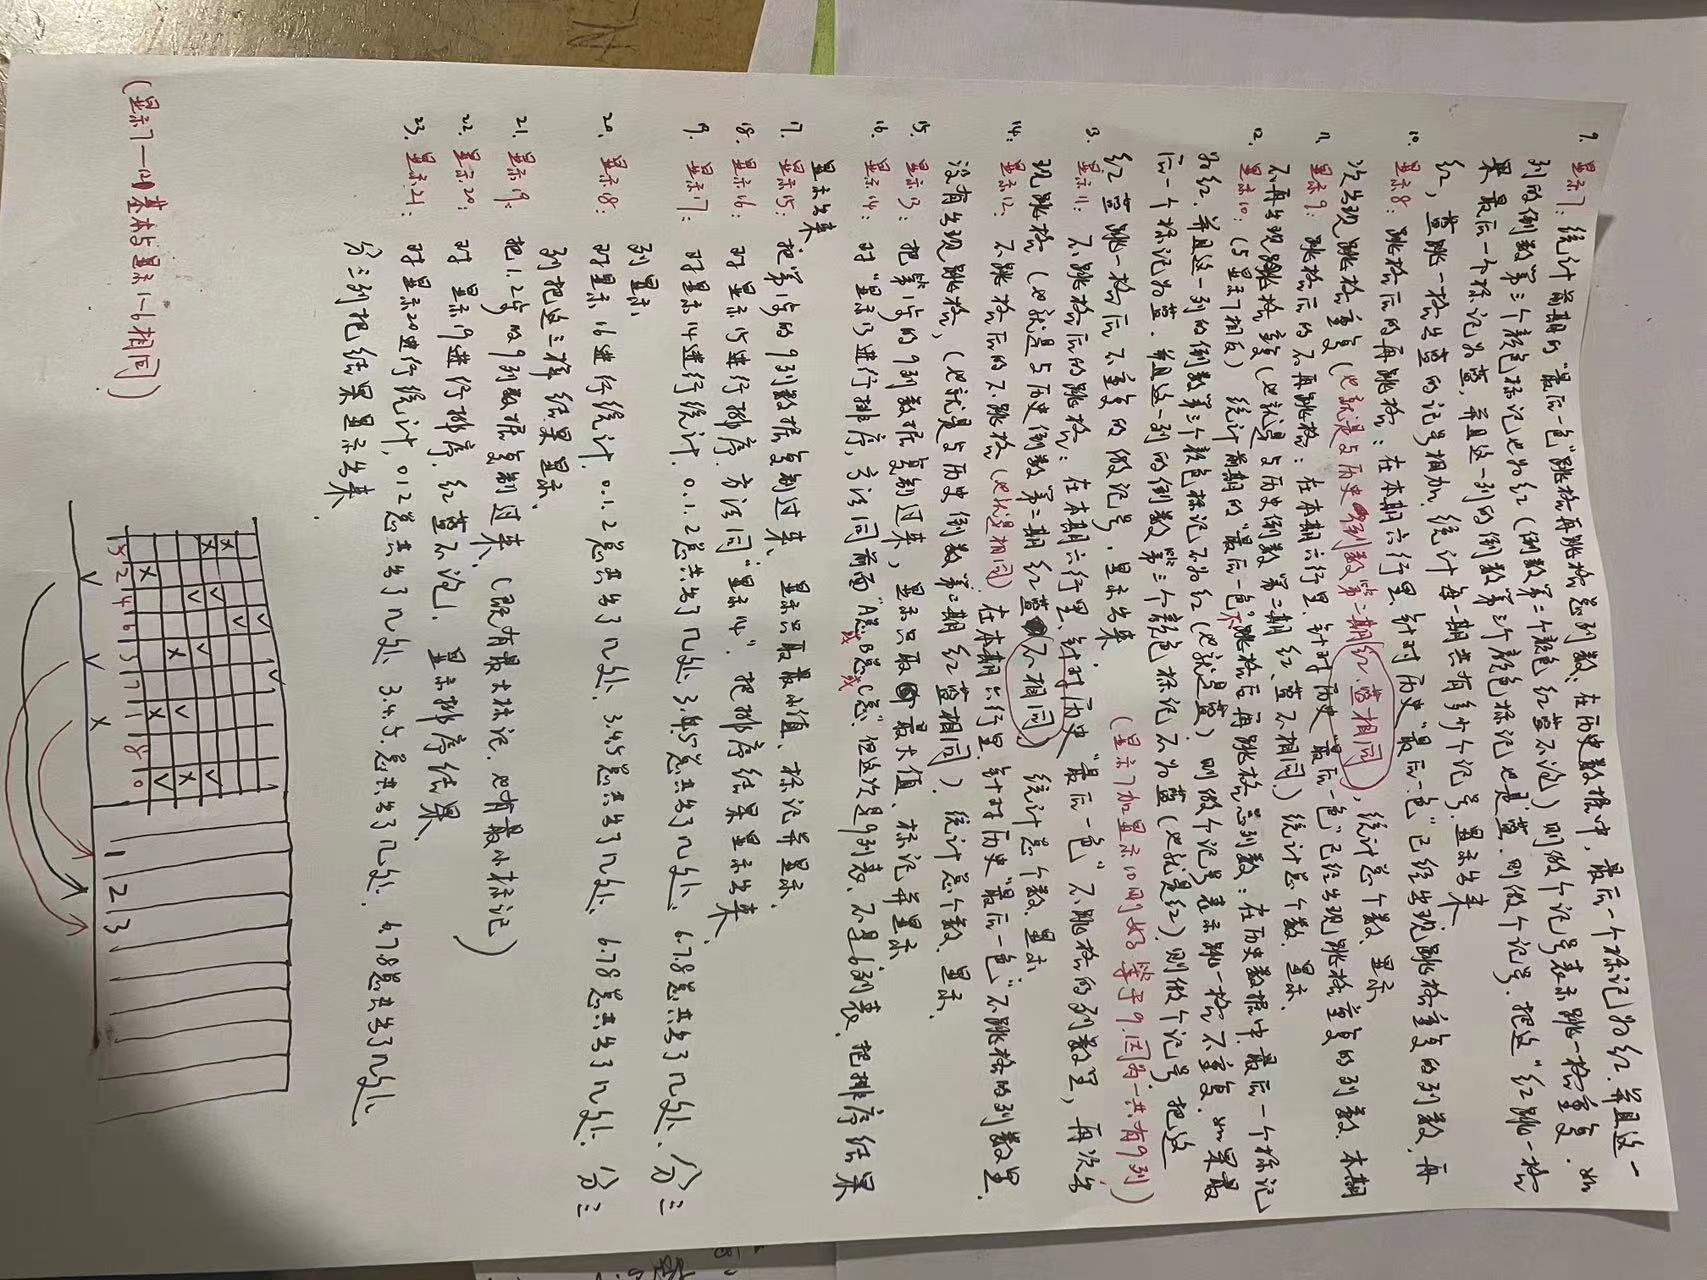 9. 显示7: 统计前期的"最后一色"跳格再跳格总列数: 在历史数据中, 最后一个标记为红. 并且这一
列的倒数第三个颜色标记也为红 (倒数第二个颜色 红蓝不论) 则做个记号表示跳一格重复. 如
果最后一个标记为蓝, 并且这一列的倒数第三个颜色标记也是蓝. 则做个记号. 把这"红跳一格
红, 蓝跳一格出蓝的记号相加. 统计每一期共有多少个记号. 显示出来
10. 显示8: 跳格后的再跳格: 在本期六行里. 针对历史"最后一色"已经出现跳格重复的列数, 再
次出现跳格重复 (也就是与历史倒数第二期红.蓝相同), 统计总个数. 显示
11. 显示9: 跳格后的不再跳格: 在本期六行里. 针对历史"最后一色"已经出现跳格重复的列数. 本期
不再出现跳格重复 (也就是与历史倒数第二期红、蓝不相同.) 统计总个数. 显示.
12. 显示10: (与显示7相反) 统计前期的"最后一色"不跳格后再跳格总列数: 在历史数据中. 最后一个标记
为红. 并且这一列的倒数第三个颜色标记不为红 (也就是蓝) 则做个记号表示跳一格不重复. 如果最
后一个标记为蓝. 并且这一列的倒数第三个颜色标记不为蓝 (也就是红). 则做个记号. 把这
红蓝跳一格后不重复的做记号. 显示出来. (显示7加显示10刚好等于9. 因为一共有9列)
3. 显示11: 不跳格后的跳格: 在本期六行里. 针对历史"最后一色"不跳格的列数里, 再次出
现跳格 (也就是与历史倒数第二期红蓝不相同) 统计总个数. 显示.
14: 显示12: 不跳格后的不跳格 (也就是相同) 在本期六行里. 针对历史"最后一色"不跳格的列数里.
没有出现跳格, (也就是与历史倒数第二期红蓝相同). 统计总个数. 显示.
15. 显示13: 把第1步的9列数据复制过来, 显示只取最大值. 标记并显示
16. 显示14: 对"显示13进行排序, 方法同前面"A总或B总或C总". 但这次是9列表. 不是6列表. 把排序结果
显示出来.
17. 显示15: 把第1步的9列数据复制过来、显示只取最小值. 标记并显示.
18. 显示16: 对显示15进行排序. 方法同"显示14". 把排序结果显示出来.
9. 显示17: 对显示14进行统计. 0.1.2总共出了几处. 3.4.5总共出了几处. 6.7.8总共出了几处. 分三
列显示.
20. 显示18: 对显示16进行统计. 0.1.2总共出了几处. 3.4.5总共出了几处. 6.7.8总共出了几处. 分三
列把这三样结果显示.
21. 显示19: 把1.2步的9列数据复制过来. (既有最大标记. 也有最小标记)
22. 显示20: 对显示19进行排序. 红蓝不论. 显示排序结果.
23. 显示21: 对显示20进行统计, 012总共出了几处. 3.4.5.总共出了几处. 6.7.8总共出了几处.
分三列把结果显示出来.
(显示7—12基本与显示1-6相同)
5 2 4 6 3 7 1 8 0
1 2 3